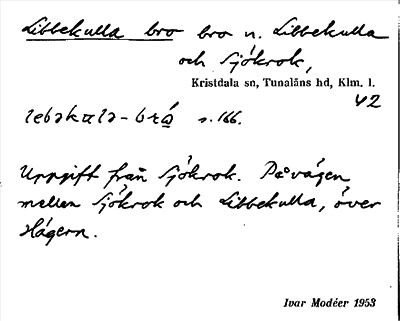 Libbekulla bro bro n. Libbekulla
och Sjökrok,
Kristdala sn, Tunaläns hd, Klm. l.
42
lebəkɑlə-brå s. 166.
Uppgift från Sjökrok. På vägen
mellan Sjökrok och Libbekulla, över
Hägern.
Ivar Modéer 1953